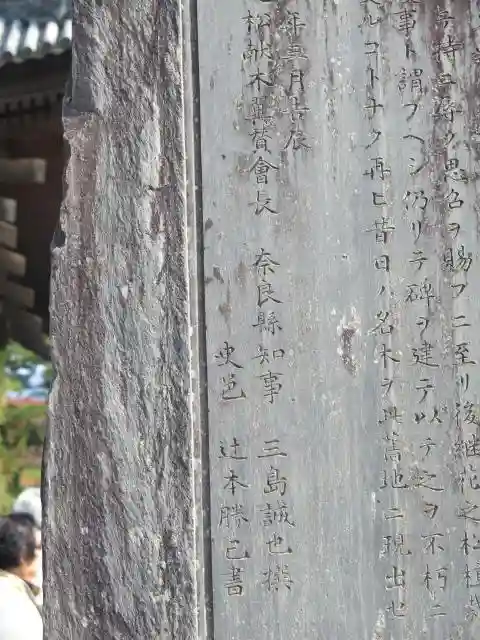 特ニ尋ク恩名ヲ賜フニ至リ後継花之松植栽
事ト謂フヘシ仍リテ碑ヲ建テ以テ之ヲ不朽ニ
ルコトナク再ヒ昔日ノ名木ヲ此舊地ニ現出セ
年五月吉辰
松献木翼賛會長 奈良縣知事 三島誠也撰
史邑 辻本勝巳書